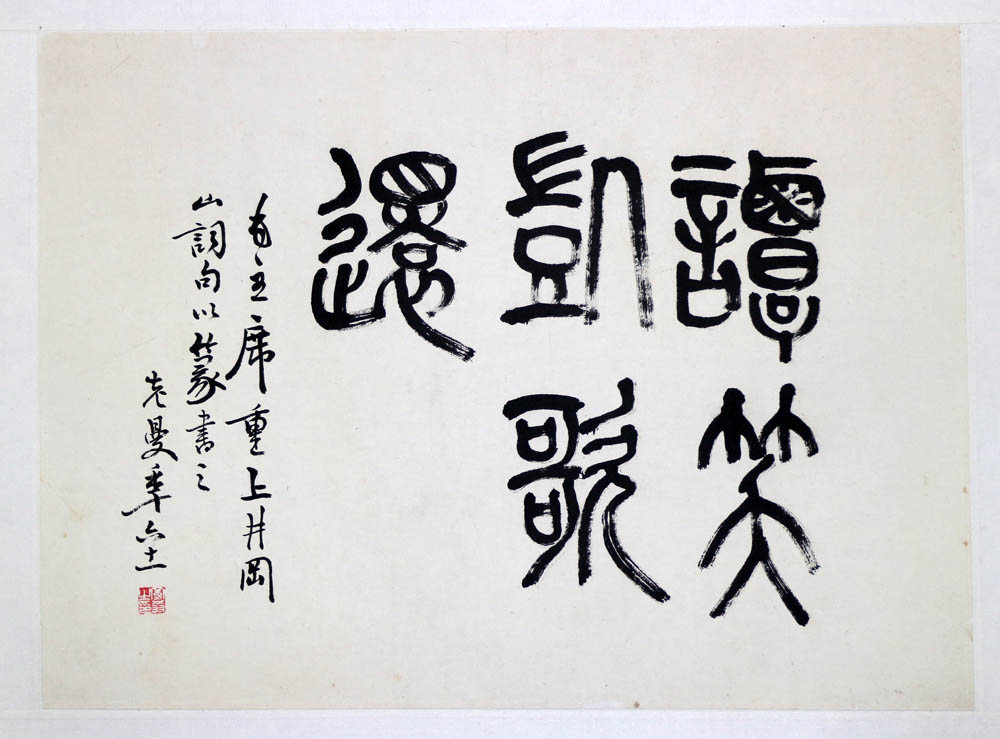 譚笑
凱歌
還
毛主席重上井岡
山詞句以篆書之
老曼年六十一